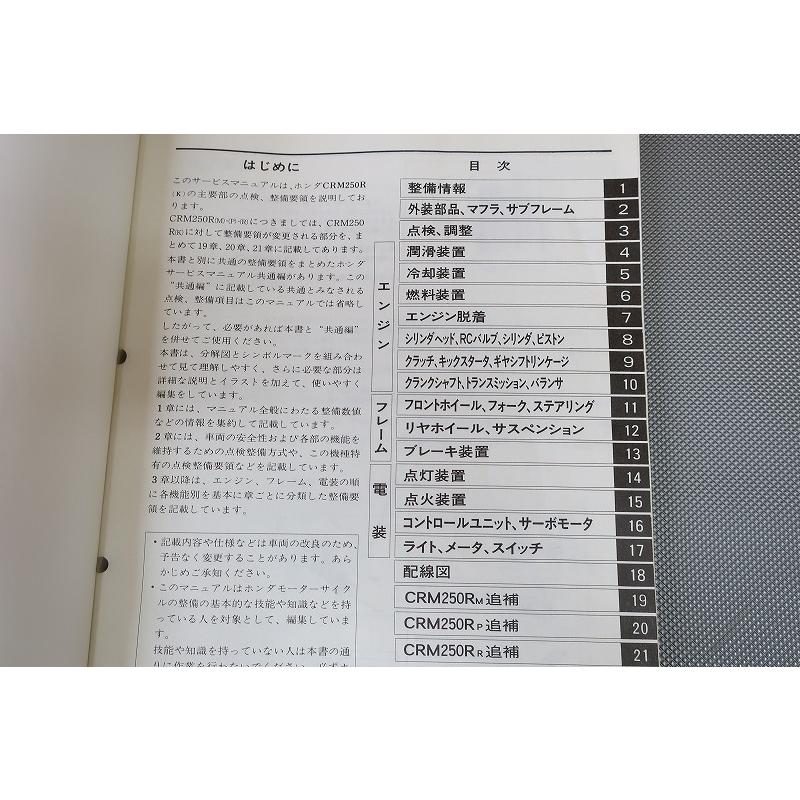 はじめに
このサービスマニュアルは、ホンダCRM250R
(K)の主要部の点検、整備要領を説明してお
ります。
CRM250R(M)・(P)・(R)につきましては、CRM250
R(K)に対して整備要領が変更される部分を、ま
とめて19章、20章、21章に記載してあります。
本書と別に共通の整備要領をまとめたホンダ
サービスマニュアル共通編があります。この
“共通編”に記載している共通とみなされる
点検、整備項目はこのマニュアルでは省略し
ています。
したがって、必要があれば本書と“共通編”
を併せてご使用ください。
本書は、分解図とシンボルマークを組み合わ
せて見て理解しやすく、さらに必要な部分は
詳細な説明とイラストを加えて、使いやすく
編集をしています。
1章には、マニュアル全般にわたる整備数値
などの情報を集約して記載しています。
2章には、車両の安全性および各部の機能を
維持するための点検整備方式や、この機種特
有の点検整備要領などを記載しています。
3章以降は、エンジン、フレーム、電装の順
に各機能別を基本に章ごとに分類した整備要
領を記載しています。
・記載内容や仕様などは車両の改良のため、
予告なく変更することがあります。あら
かじめご承知ください。
・このマニュアルはホンダモーターサイク
ルの整備の基本的な技能や知識などを持
っている人を対象として、編集していま
す。
技能や知識を持っていない人は本書の通
目次
整備情報 1
外装部品、マフラ、サブフレーム 2
点検、調整 3
エンジン
潤滑装置 4
冷却装置 5
燃料装置 6
エンジン脱着 7
シリンダヘッド、RCバルブ、シリンダ、ピストン 8
クラッチ、キックスタータ、ギヤシフトリンケージ 9
クランクシャフト、トランスミッション、バランサ 10
フレーム
フロントホイール、フォーク、ステアリング 11
リヤホイール、サスペンション 12
ブレーキ装置 13
電装
点灯装置 14
点火装置 15
コントロールユニット、サーボモータ 16
ライト、メータ、スイッチ 17
配線図 18
CRM250RM追補 19
CRM250RP追補 20
CRM250RR追補 21